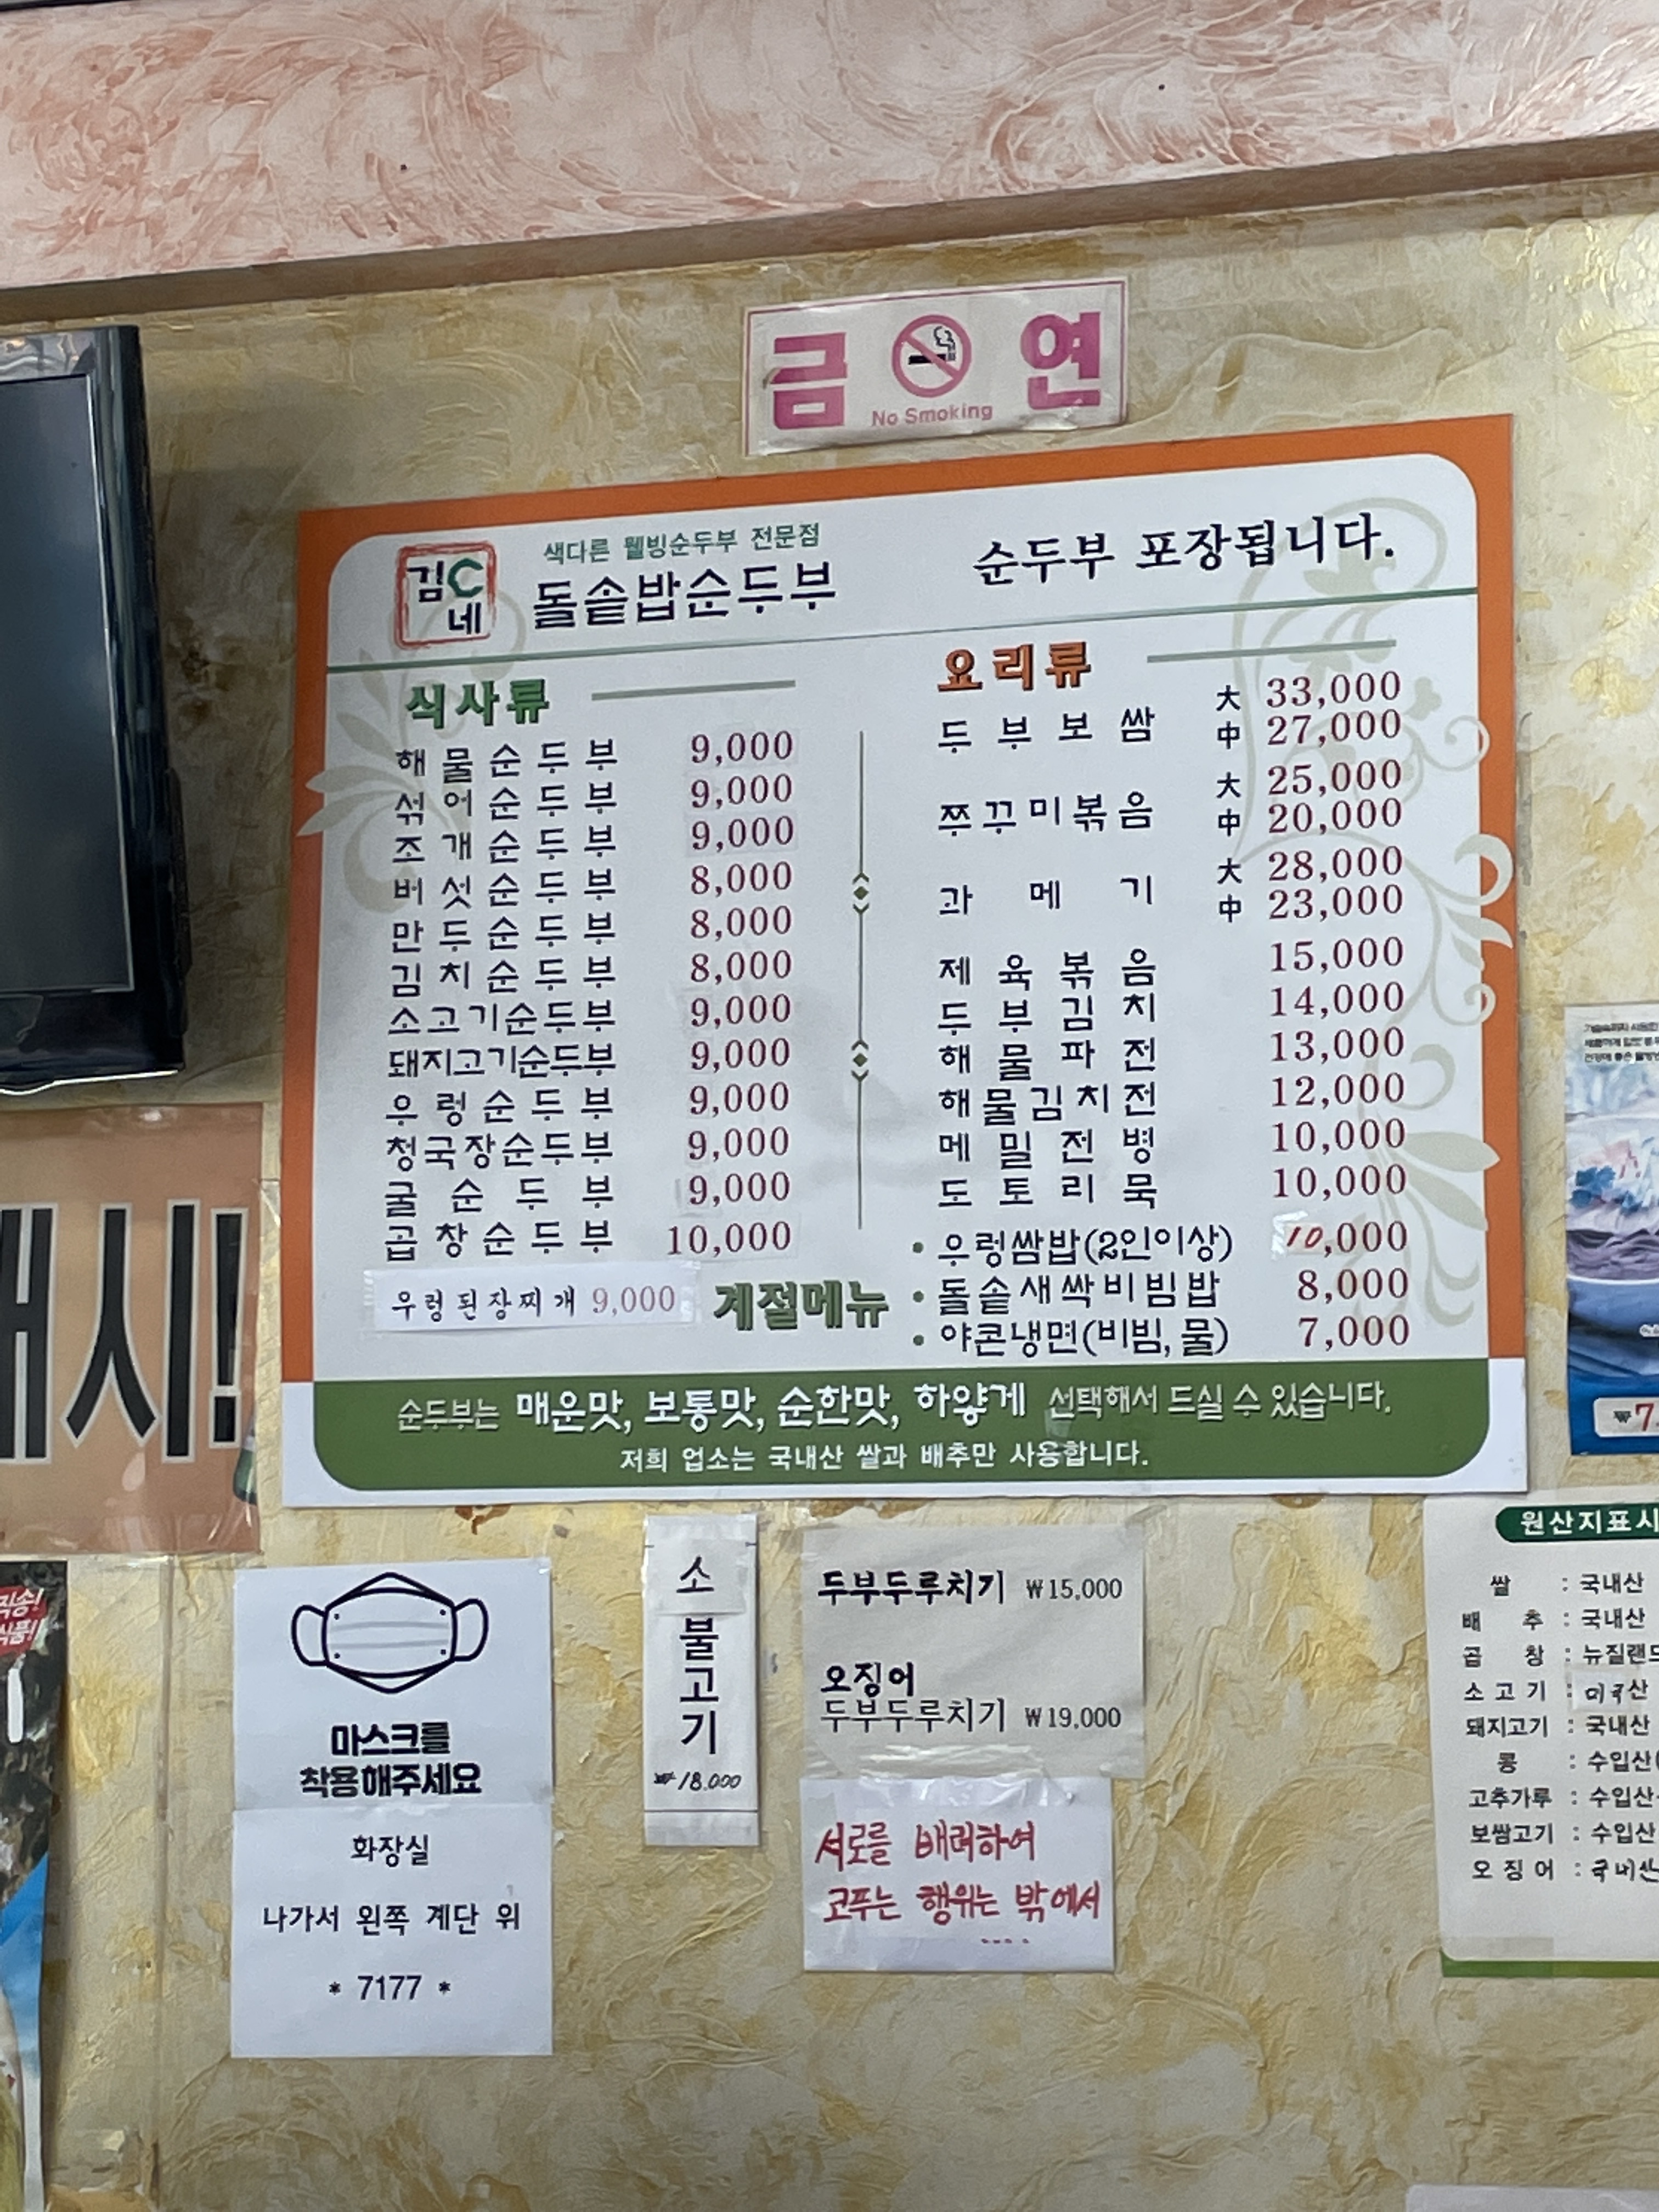 금 연
No Smoking
김C네
색다른 웰빙순두부 전문점
돌솥밥순두부
순두부 포장됩니다.
식사류
해물순두부 9,000
섞어순두부 9,000
조개순두부 9,000
버섯순두부 8,000
만두순두부 8,000
김치순두부 8,000
소고기순두부 9,000
돼지고기순두부 9,000
우렁순두부 9,000
청국장순두부 9,000
굴순두부 9,000
곱창순두부 10,000
우렁된장찌개 9,000
요리류
두부보쌈 大 33,000
中 27,000
쭈꾸미볶음 大 25,000
中 20,000
과메기 大 28,000
中 23,000
제육볶음 15,000
두부김치 14,000
해물파전 13,000
해물김치전 12,000
메밀전병 10,000
도토리묵 10,000
계절메뉴
• 우렁쌈밥(2인이상) 10,000
• 돌솥새싹비빔밥 8,000
• 야콘냉면(비빔, 물) 7,000
순두부는 매운맛, 보통맛, 순한맛, 하얗게 선택해서 드실 수 있습니다.
저희 업소는 국내산 쌀과 배추만 사용합니다.
마스크를
착용해주세요
화장실
나가서 왼쪽 계단 위
* 7177 *
소불고기
₩18.000
두부두루치기 ₩15,000
오징어
두부두루치기 ₩19,000
서로를 배려하여
코푸는 행위는 밖에서
....
원산지표시
쌀 : 국내산
배추 : 국내산
곱창 : 뉴질랜드
소고기 : 미국산
돼지고기 : 국내산
콩 : 수입산
고추가루 : 수입산
보쌈고기 : 수입산
오징어 : 국내산